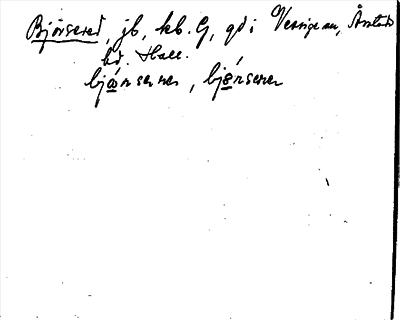 Björsered, jb, kb. G, gd i Vessige sn, Årstads
hd. Hall.
bjønserer, bjønserer